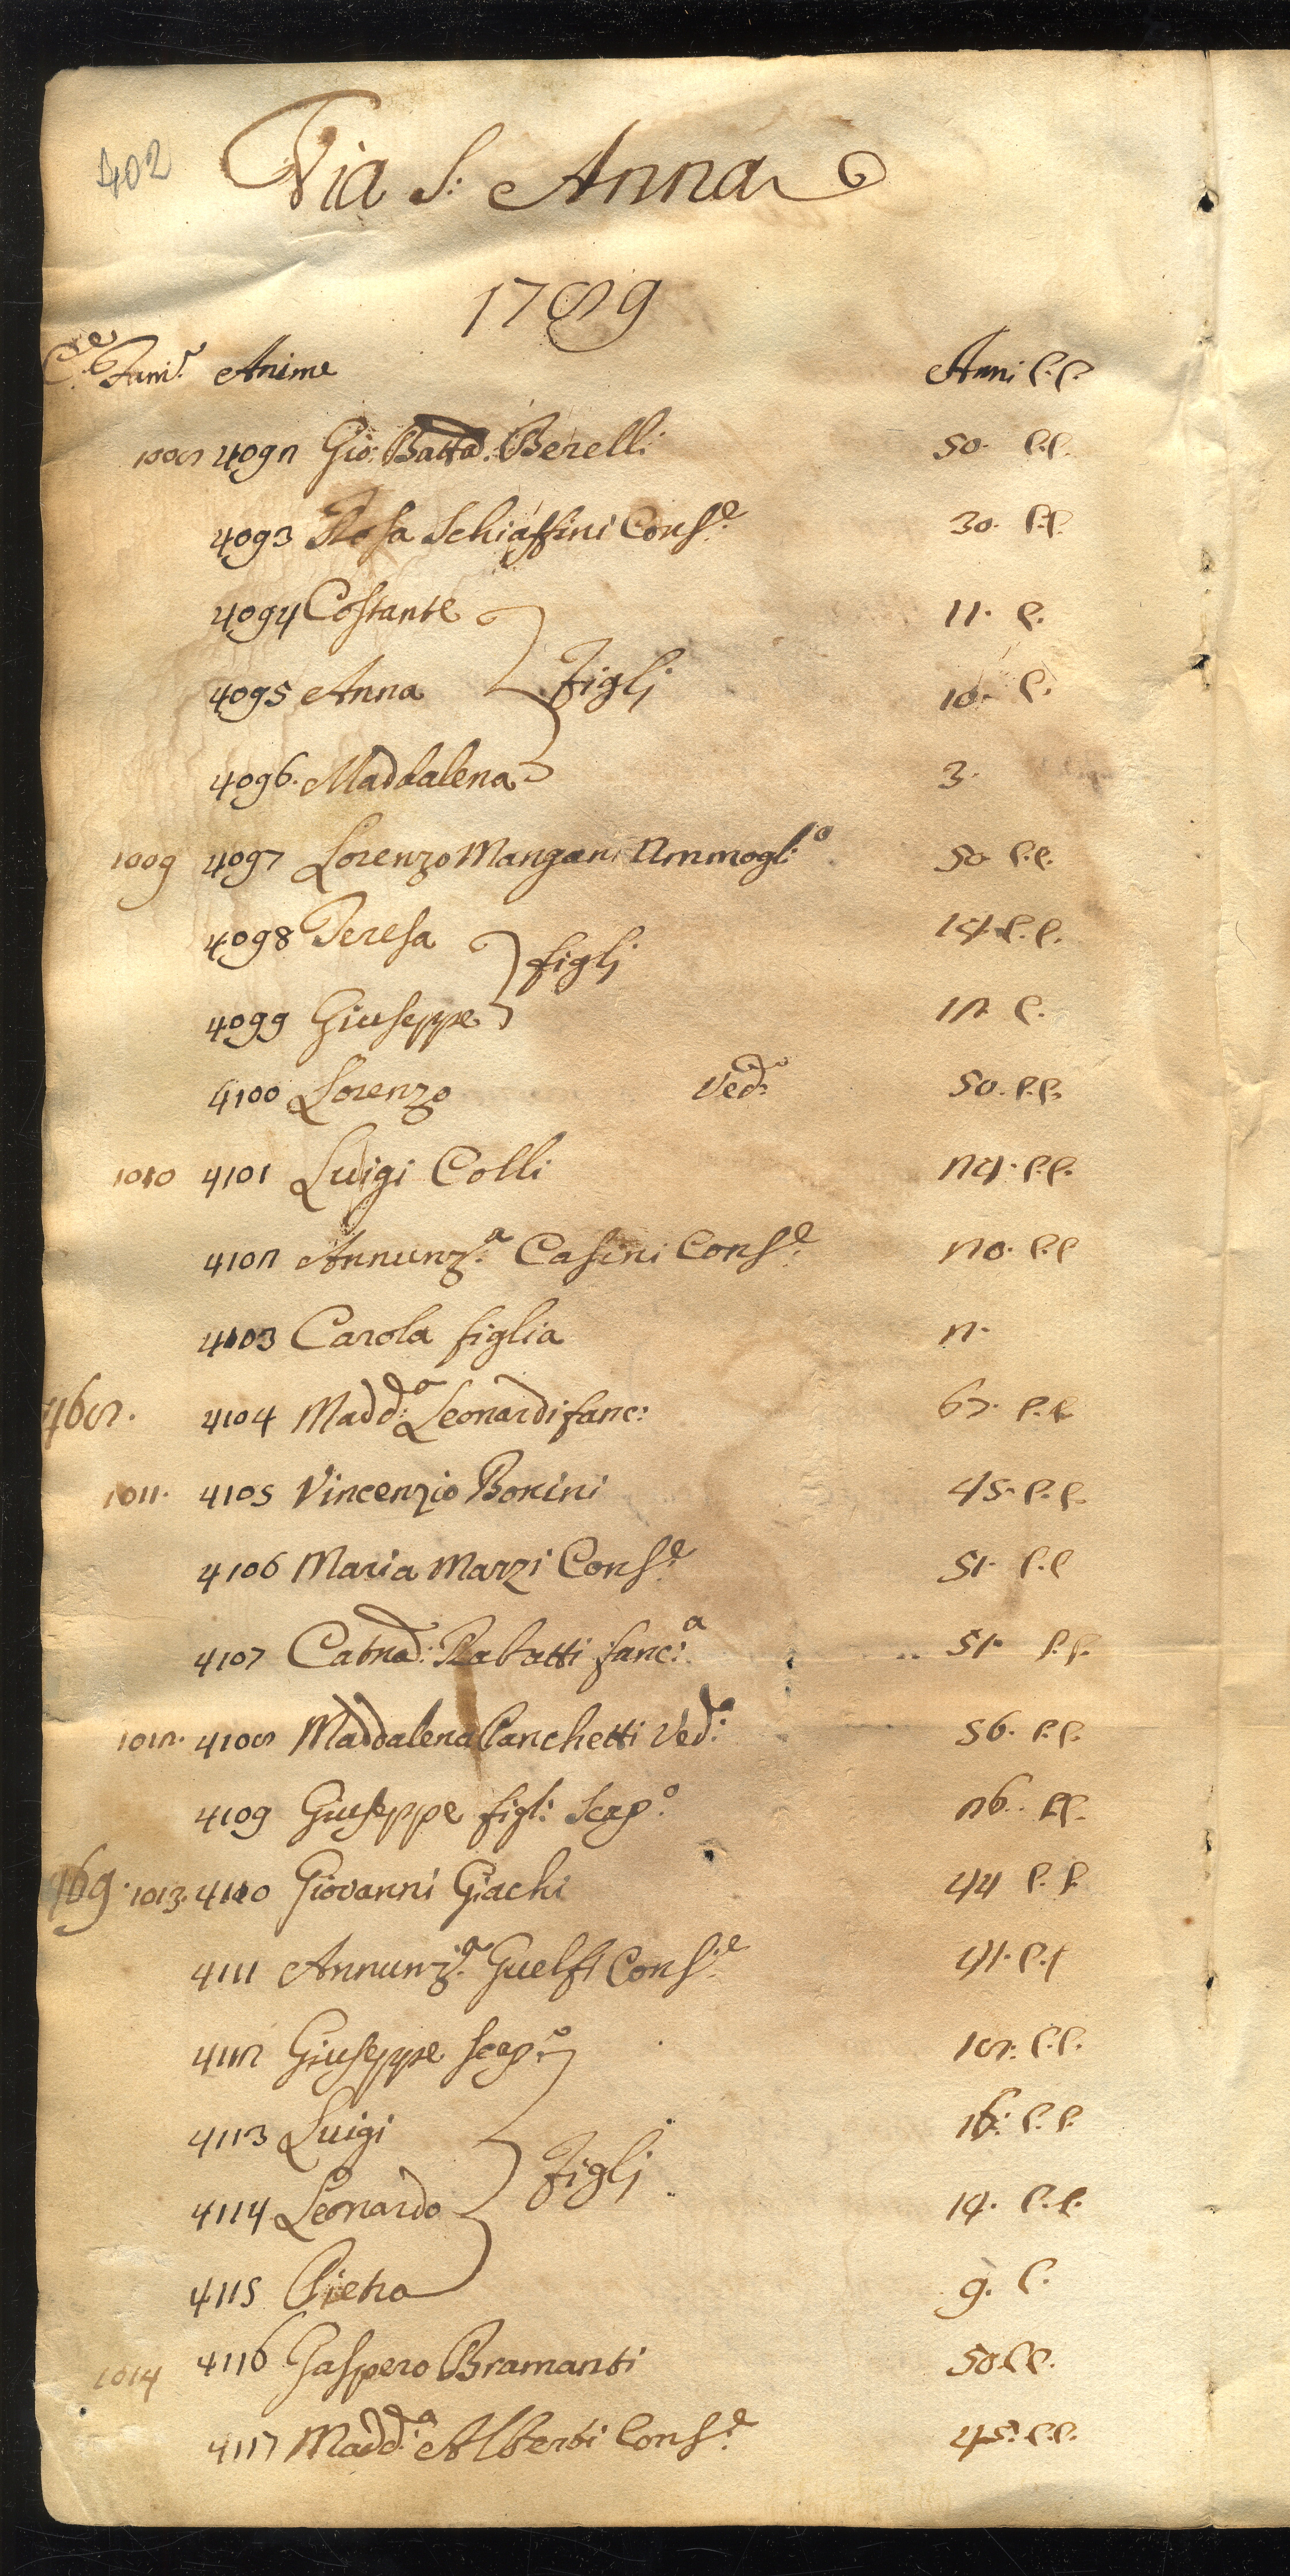 402
Via S: Anna
1789
C.e Fam.e Anime Anni C.C.
1008 4092 Gio: Batta: Berelli 50. C.C.
4093 Rosa Schiaffini Cons.e 30. C.C.
4094 Costante 11. C.
4095 Anna Figli 10. C.
4096. Maddalena 3.
1009 4097 Lorenzo Mangani Ammogl:o 50. C.C.
4098 Teresa 14. C.C.
figli
4099 Giuseppe 12. C.
4100 Lorenzo Ved:o 50. C.C.
1010 4101 Luigi Colli 24. C.C.
4102 Annunz.a Casini Cons.e 20. C.C
4103 Carola figlia 2.
468. 4104 Madd:a Leonardi fanc: 67. C.C
1011. 4105 Vincenzio Bonini 45. C.C.
4106 Maria Marzi Cons.e 51. C.C
4107 Catna: Rabatti fanc:a 51. C.C.
1012. 4108 Maddalena Panchetti Ved:a 56. C.C.
4109 Giuseppe figl: Scap.o 26. C.C.
469. 1013. 4110 Giovanni Giachi 44 C.C.
4111 Annunz.a Guelfi Cons.e 41. C.C
4112 Giuseppe Scap:o 18. C.C.
4113 Luigi 16: C.C.
Figli
4114 Leonardo 14. C.C.
4115 Pietro 9. C.
1014 4116 Gaspero Bramanti 50 C.C.
4117 Madd:a Alberti Cons.e 45. C.C.